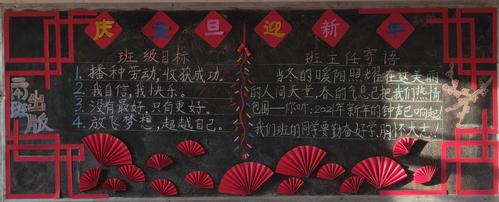 庆元旦迎新年
班级目标
1. 播种劳动,收获成功。
2. 我自信,我快乐。
3. 没有最好,只有更好。
4. 放飞梦想,超越自己。
班主任寄语
当冬的暖阳照耀在这美丽
的人间天堂,春的气息已把我们热情
包围——你听:2021年新年的钟声已响起!
我们班的同学要勤奋好学,胸怀大志!
班出版